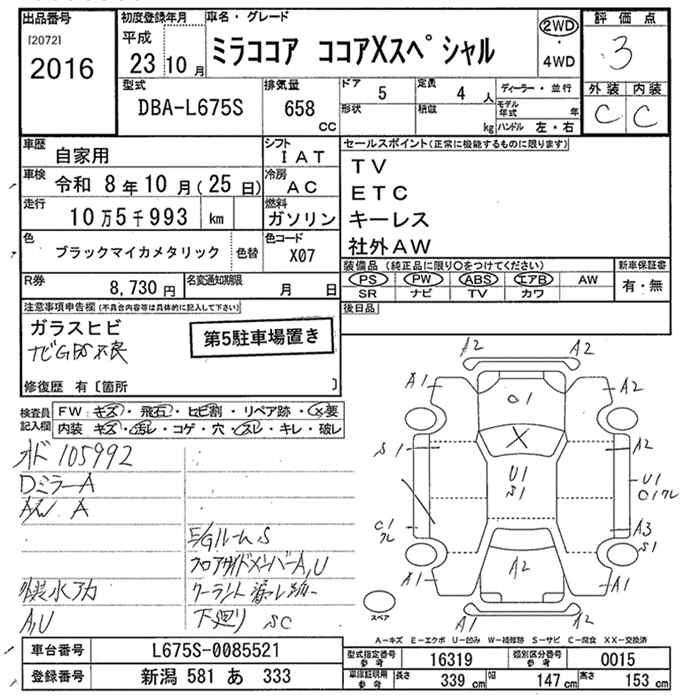 出品番号 初度登録年月 車名・グレード 評価点
[2072] 2016 平成 23年 10月 ミラココア ココアXスペシャル 2WD・4WD 3
型式 排気量 ドア 定員 ディーラー・並行 外装 内装
DBA-L675S 658 CC 5 4人 C C
形状 積載 kg モデル年式 年 ハンドル 左・右
車歴 自家用 シフト IAT セールスポイント(正常に機能するものに限ります)
車検 令和 8年 10月(25日) 冷房 AC TV
ETC
走行 10万5千993 km 燃料 ガソリン キーレス
色 ブラックマイカメタリック 色替 色コード X07 社外AW
装備品(純正品に限り○をつけてください) 新車保証書
R券 8,730円 名変通知期限 月 日 PS PW ABS エアB AW 有・無
SR ナビ TV カワ
注意事項申告欄(不具合内容等は具体的に記入して下さい) 後日品
ガラスヒビ 第5駐車場置き
ナビGPS不良
修復歴 有〔箇所 〕
検査員記入欄 FW:キズ・飛石・ヒビ割・リペア跡・X要
内装 キズ・汚レ・コゲ・穴・スレ・キレ・破レ
オド 105992
DミラーA
A/W A
E/Gルーム S
フロアサイドメンバーA,U
外装水アカ クーラント漏れ
A,U 下廻り SC
A2 A2
A1 O1 A2
S1 X A2
U1 S1
U1
C1
A3
S1
A2
A1 A1
A1 A2
スペア
A−キズ E−エクボ U−凹み W−補修跡 S−サビ C−腐食 XX−交換済
車台番号 L675S-0085521 型式指定番号 参考 16319 類別区分番号 参考 0015
登録番号 新潟 581 あ 333 車庫証明用 参考 長さ 339cm 幅 147cm 高さ 153cm